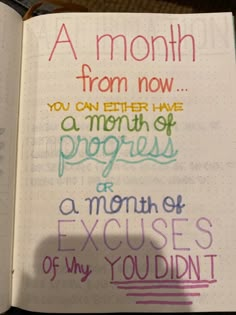 A month
from now...
YOU CAN EITHER HAVE
a month of
progress
OR
a month of
EXCUSES
OF Why YOU DIDN'T